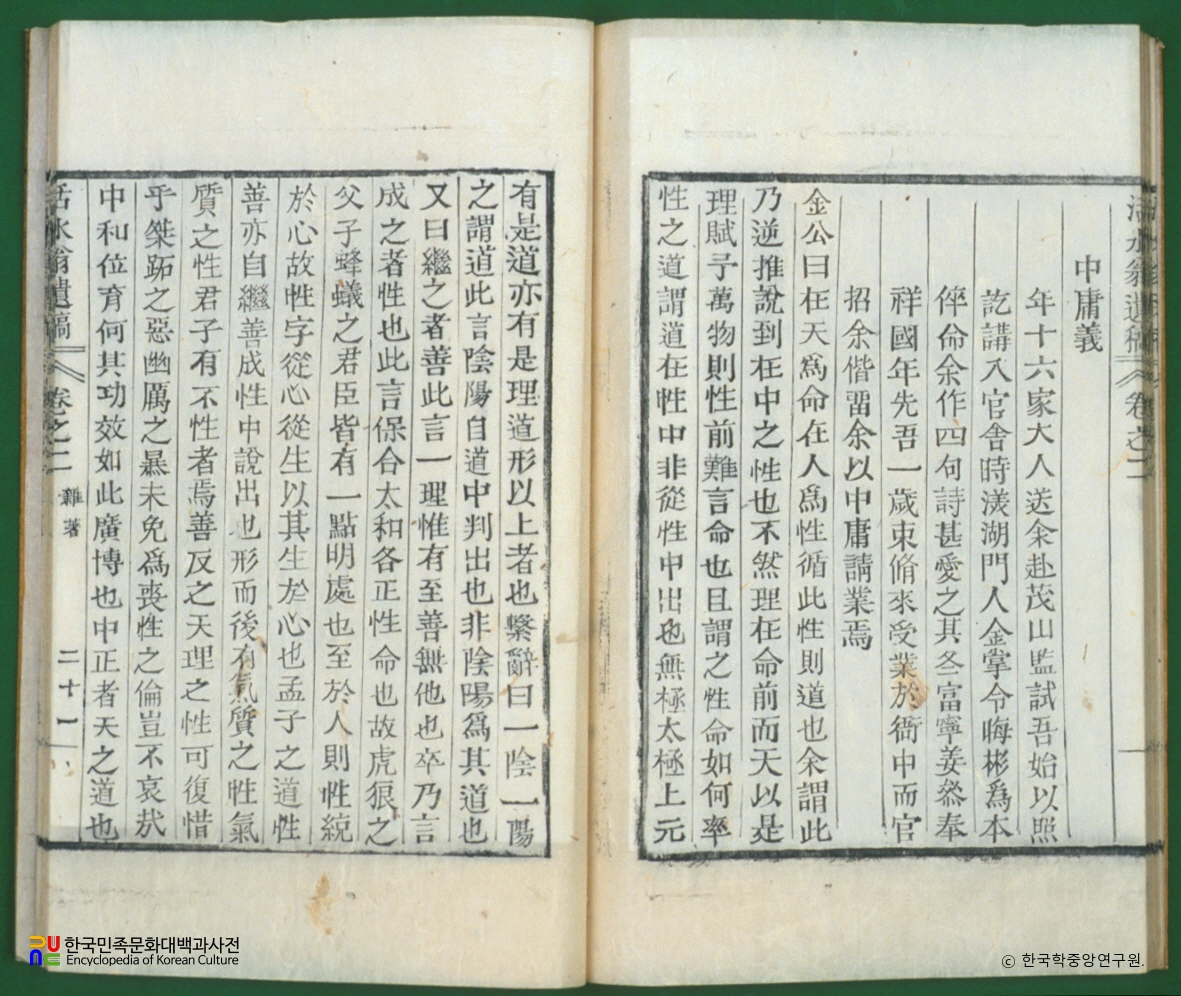 活水翁遺稿 卷之二
中庸義
年十六家大人送余赴茂山監試吾始以照
訖講入官舍時漢湖門人金掌令晦彬爲本
倅命余作四句詩甚愛之其冬富寧姜叅奉
祥國年先吾一歲束脩來受業於衙中而官
招余偕留余以中庸請業焉
金公曰在天爲命在人爲性循此性則道也余謂此
乃逆推說到在中之性也不然理在命前而天以是
理賦予萬物則性前難言命也且謂之性命如何率
性之道謂道在性中非從性中出也無極太極上元
有是道亦有是理道形以上者也繫辭曰一陰一陽
之謂道此言陰陽自道中判出也非陰陽爲其道也
又曰繼之者善此言一理惟有至善無他也卒乃言
成之者性也此言保合太和各正性命也故虎狼之
父子蜂蟻之君臣皆有一點明處也至於人則性統
於心故性字從心從生以其生於心也孟子之道性
善亦自繼善成性中說出也形而後有氣質之性氣
質之性君子有不性者焉善反之天理之性可復惜
乎桀跖之惡幽厲之暴未免爲喪性之倫豈不哀㢤
中和位育何其功效如此廣博也中正者天之道也
活水翁遺稿 卷之二 雜著 二十一
한국민족문화대백과사전
Encyclopedia of Korean Culture
ⓒ 한국학중앙연구원.